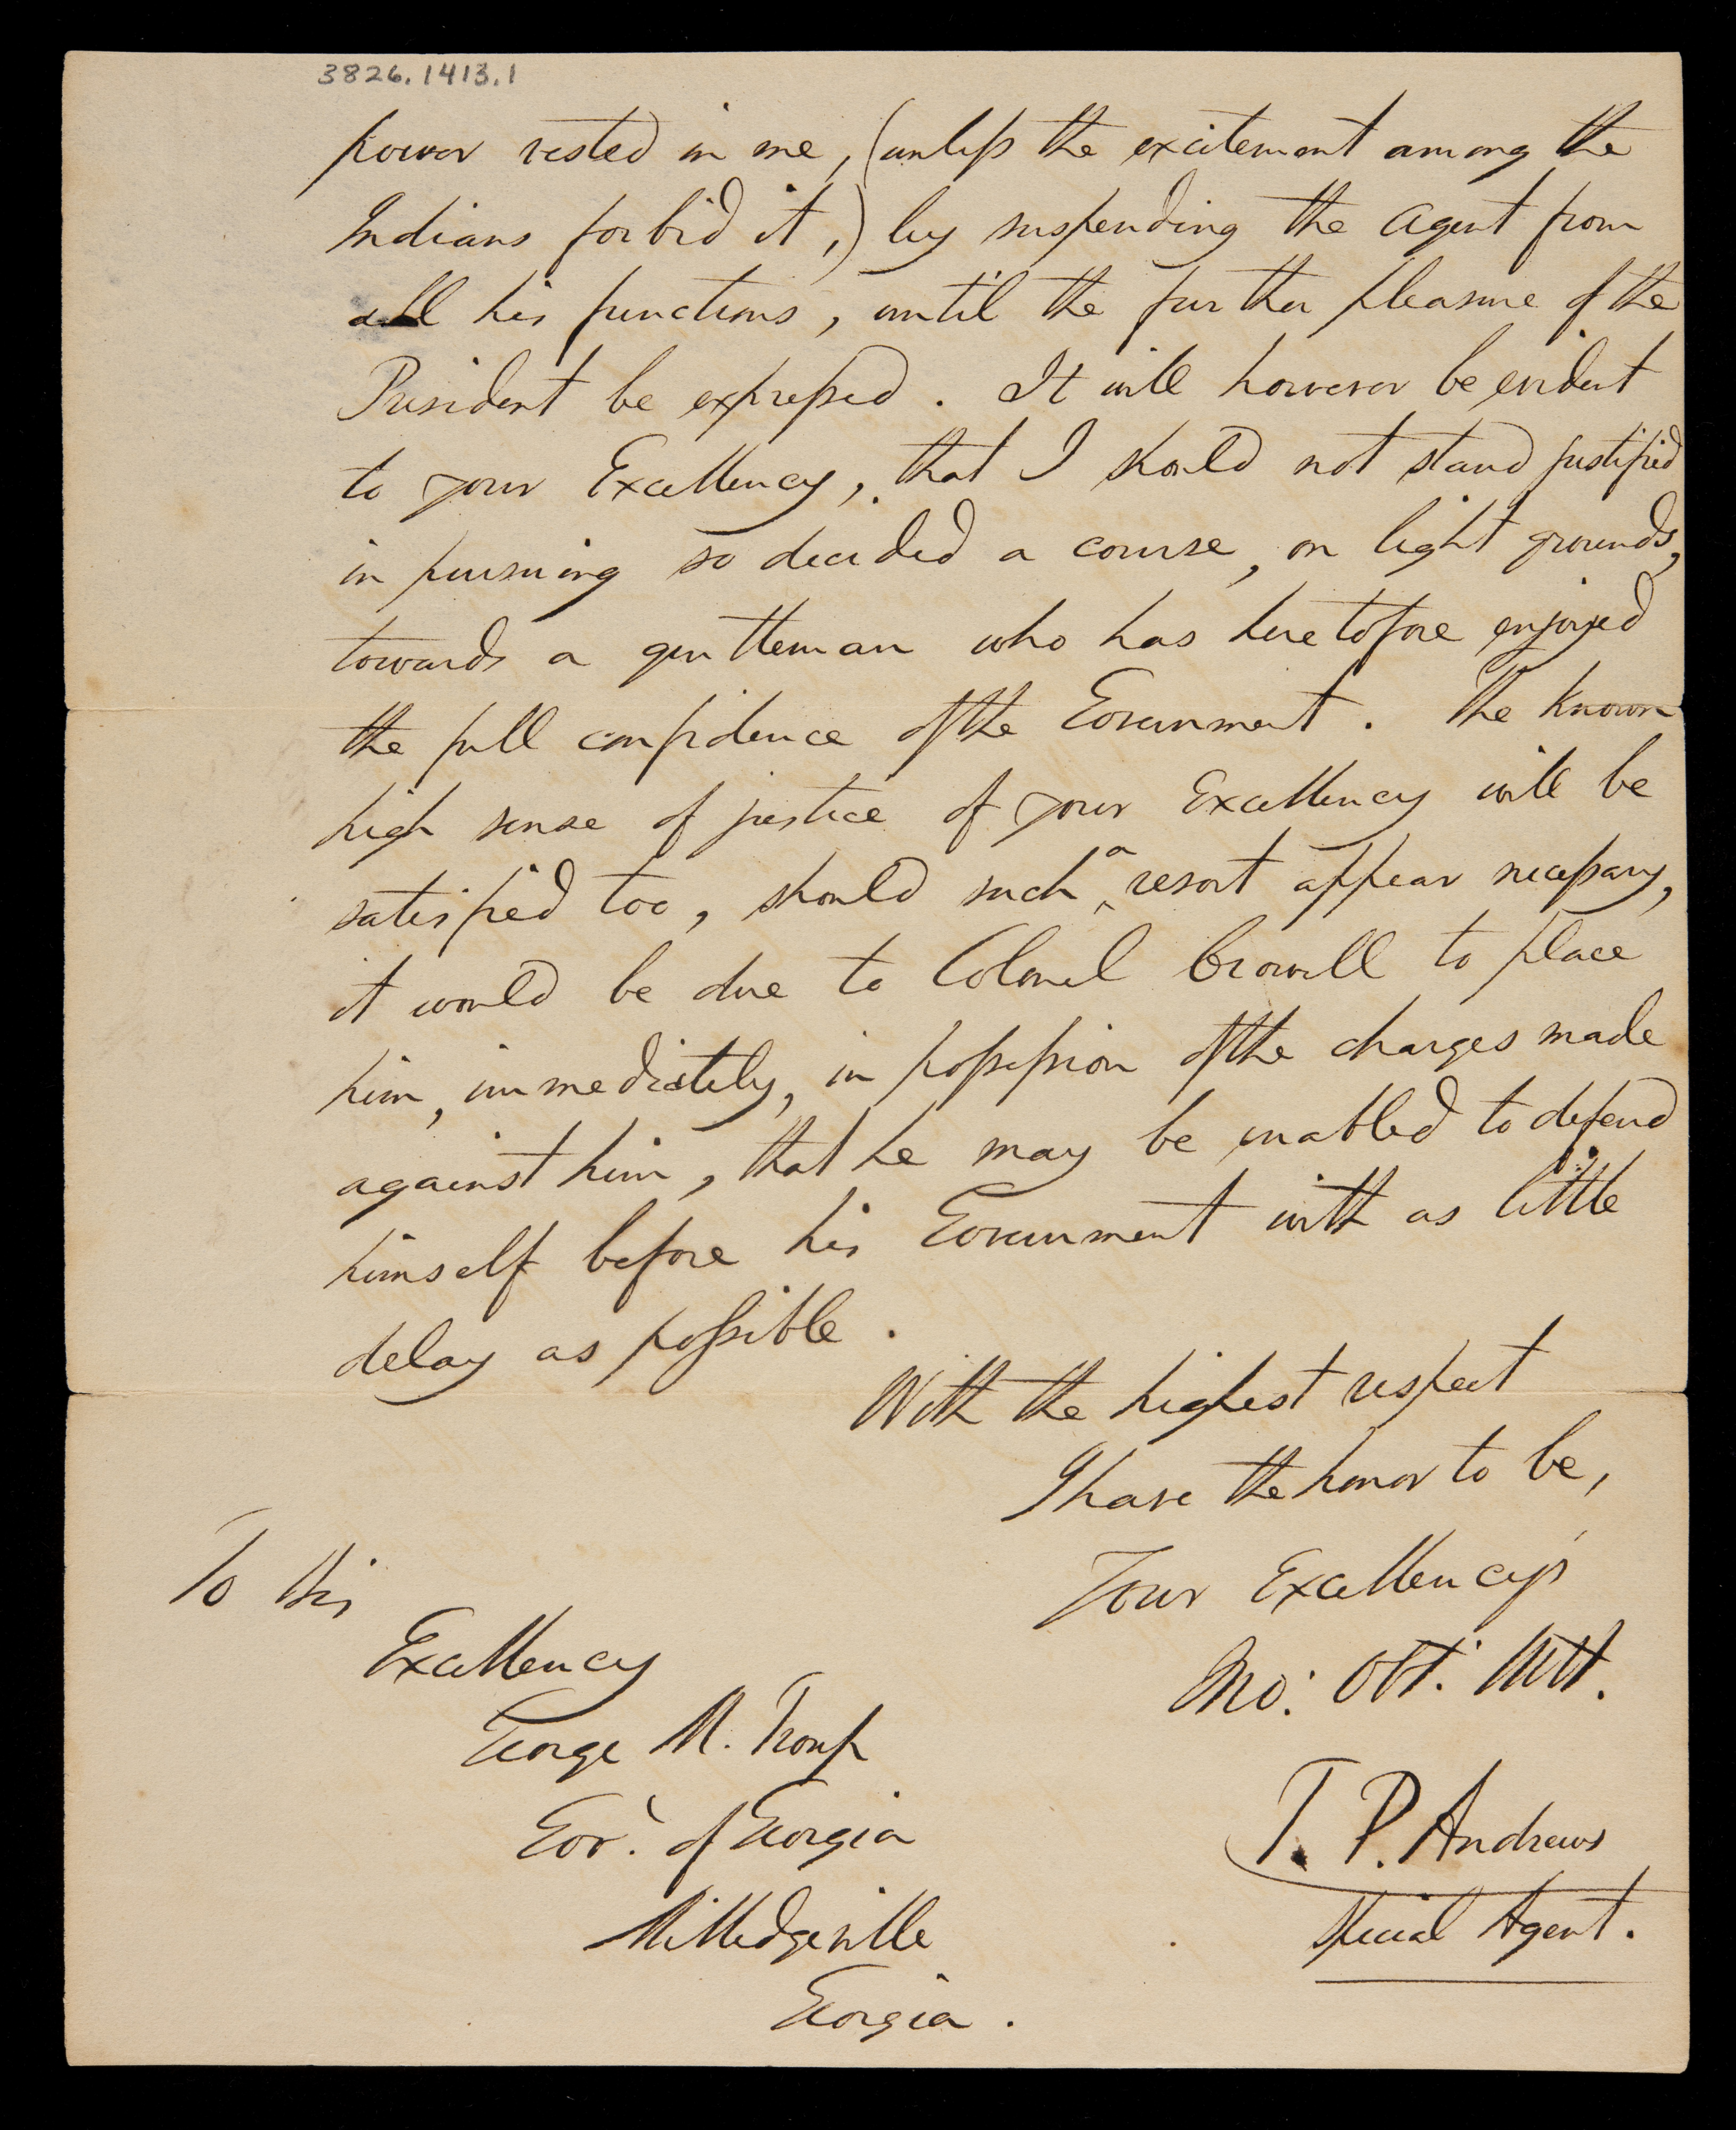 3826.1413.1
power vested in me, (unless the excitement among the
Indians forbid it,) by suspending the Agent from
all his functions, until the further pleasure of the
President be expressed. It will however be evident
to your Excellency, that I should not stand justified
in pursuing so decided a course, on light grounds,
towards a gentleman who has heretofore enjoyed
the full confidence of the Government. The known
high sense of justice of your Excellency will be
satisfied too, should such a resort appear necessary,
it would be due to Colonel Crowell to place
him, immediately, in possession of the charges made
against him, that he may be enabled to defend
himself before his Government with as little
delay as possible.
With the highest respect
I have the honor to be,
Your Excellency's
Mo: Obt: Servt.
T. P. Andrews
Special Agent.
To His
Excellency
George M. Troup
Govr. of Georgia
Milledgeville
Georgia.